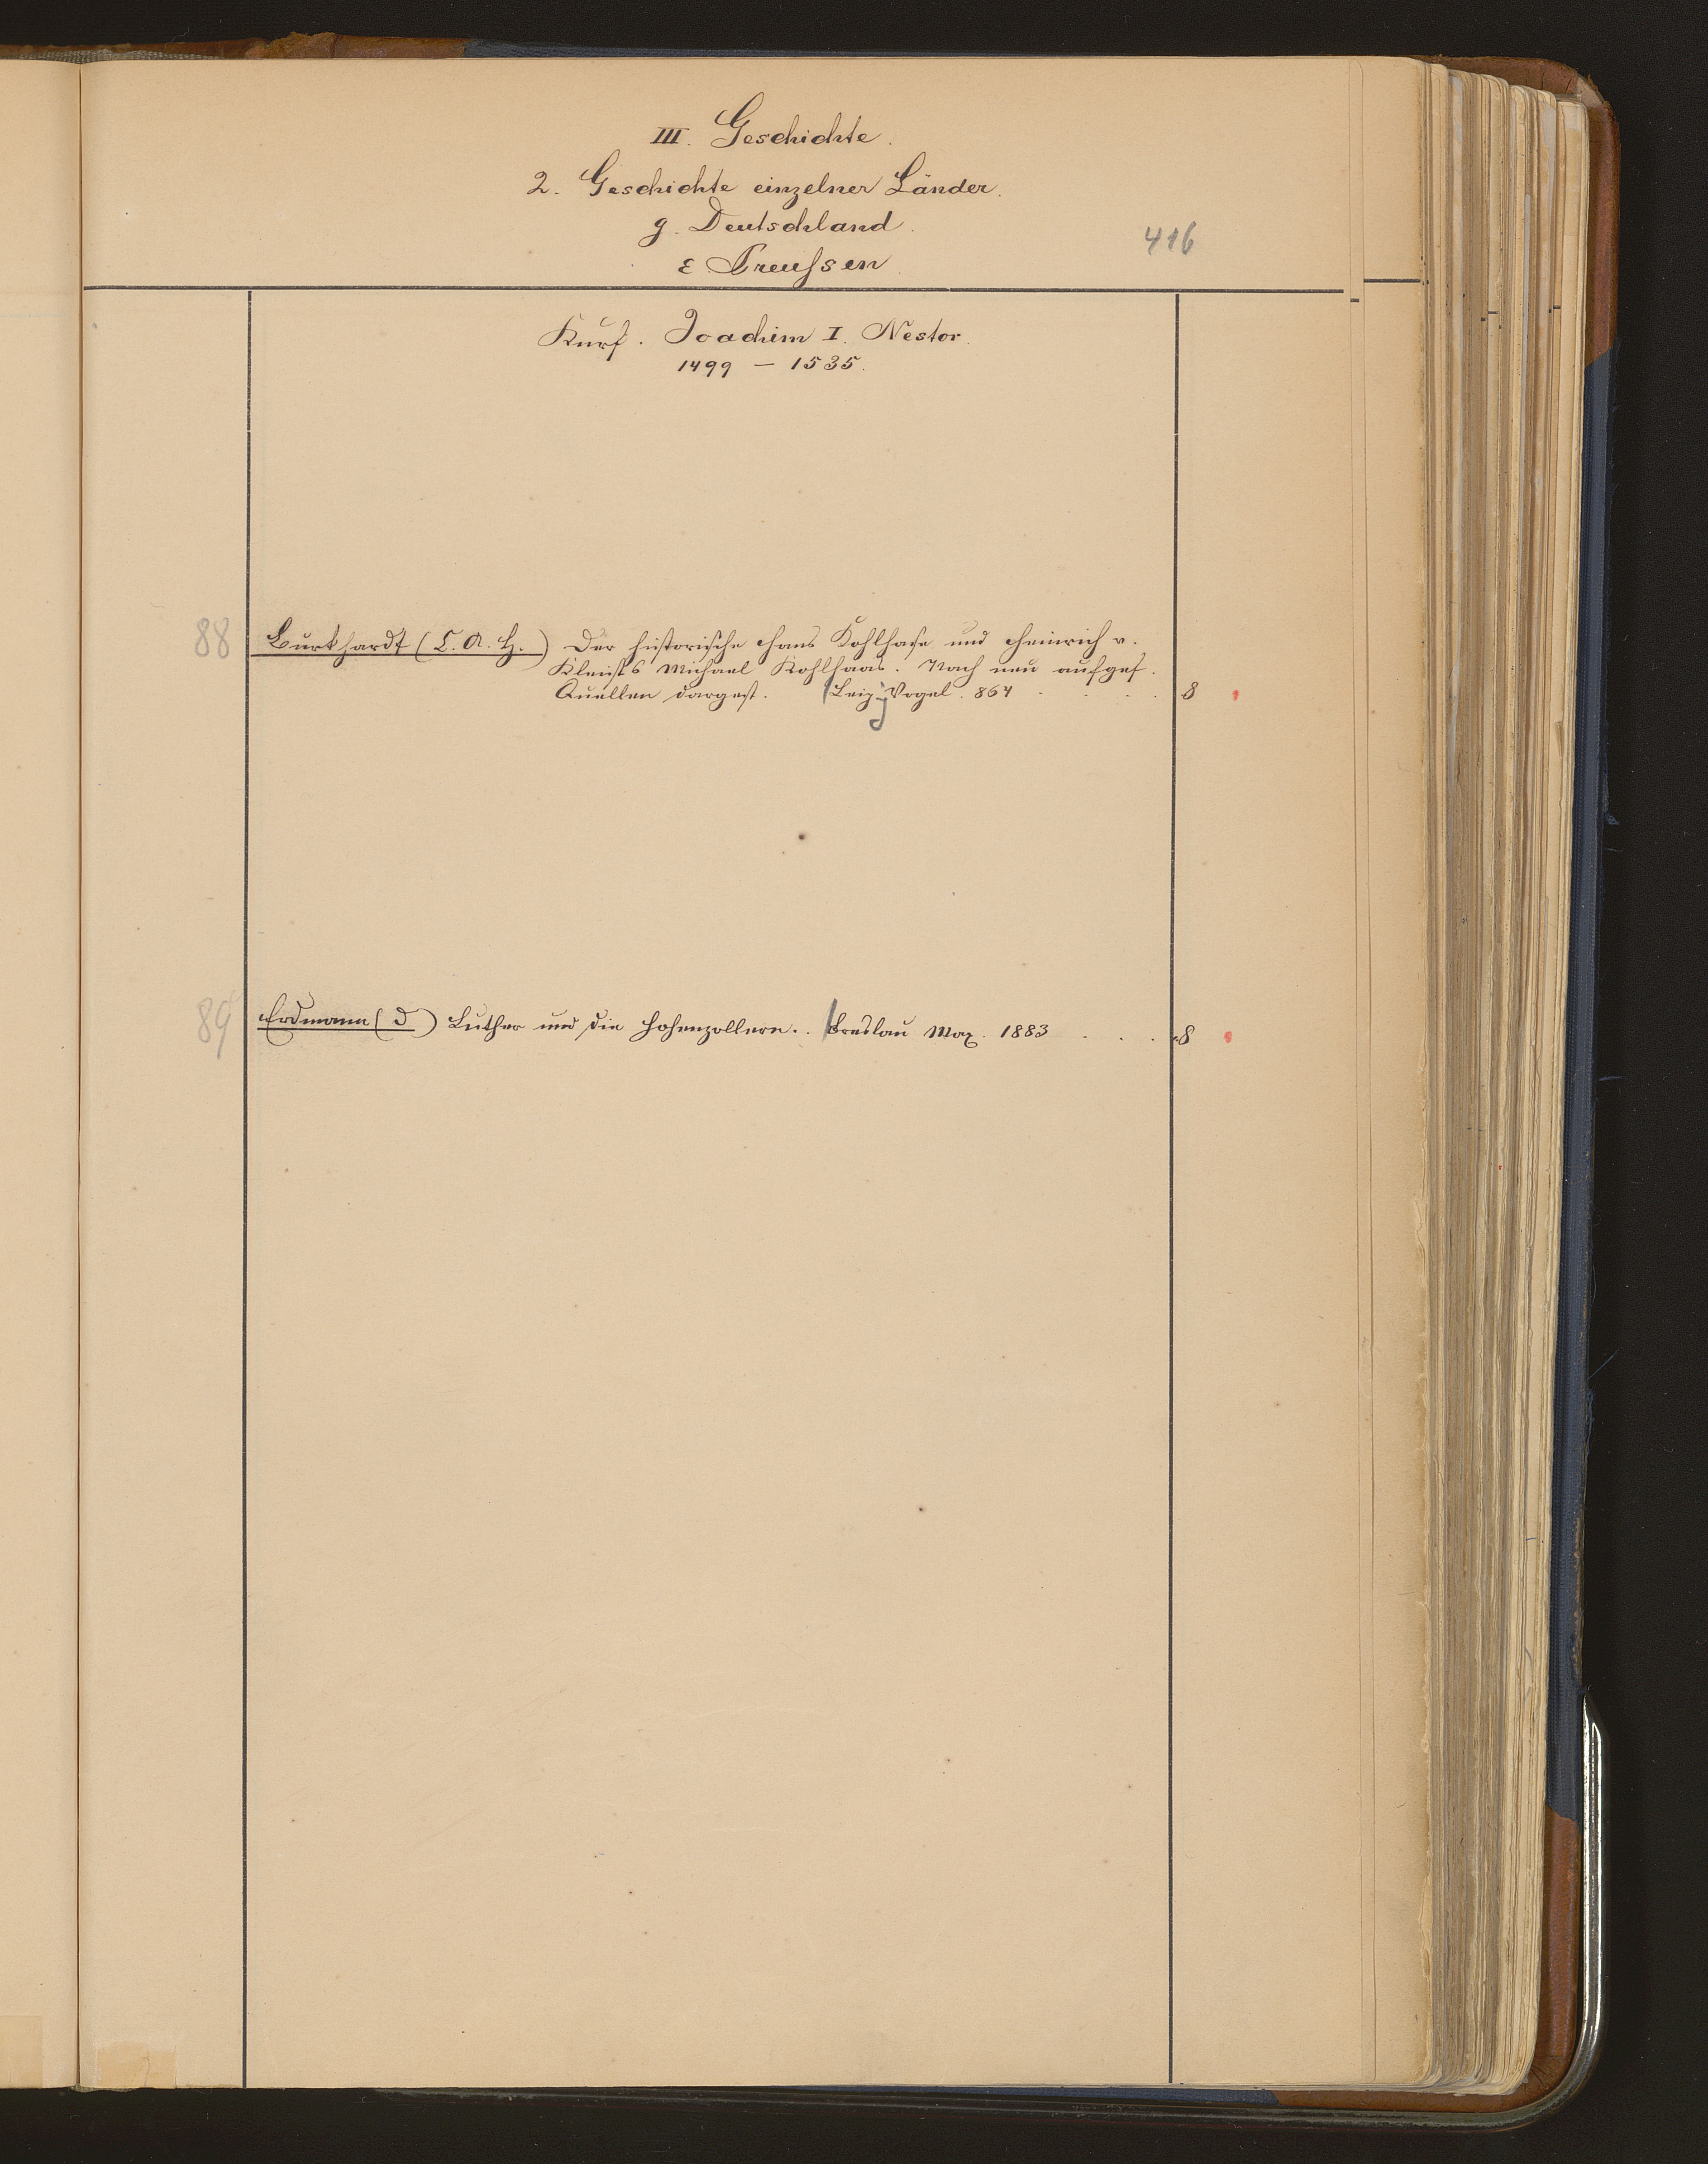 III. Geschichte.
2. Geschichte einzelner Länder.
g. Deutschland.
416
ε Preussen
Kurf. Joachim I. Nestor.
1499 – 1535.
88 Burkhardt (C. A. H.) Der historische Hans Kohlhase und Heinrich v.
Kleists Michael Kohlhaas. Nach neu aufgef.
Quellen dargest. Leipzg Vogel. 864 8
89 Erdmann (D) Luther und die Hohenzollern.. Breslau Max. 1883 . . . 8